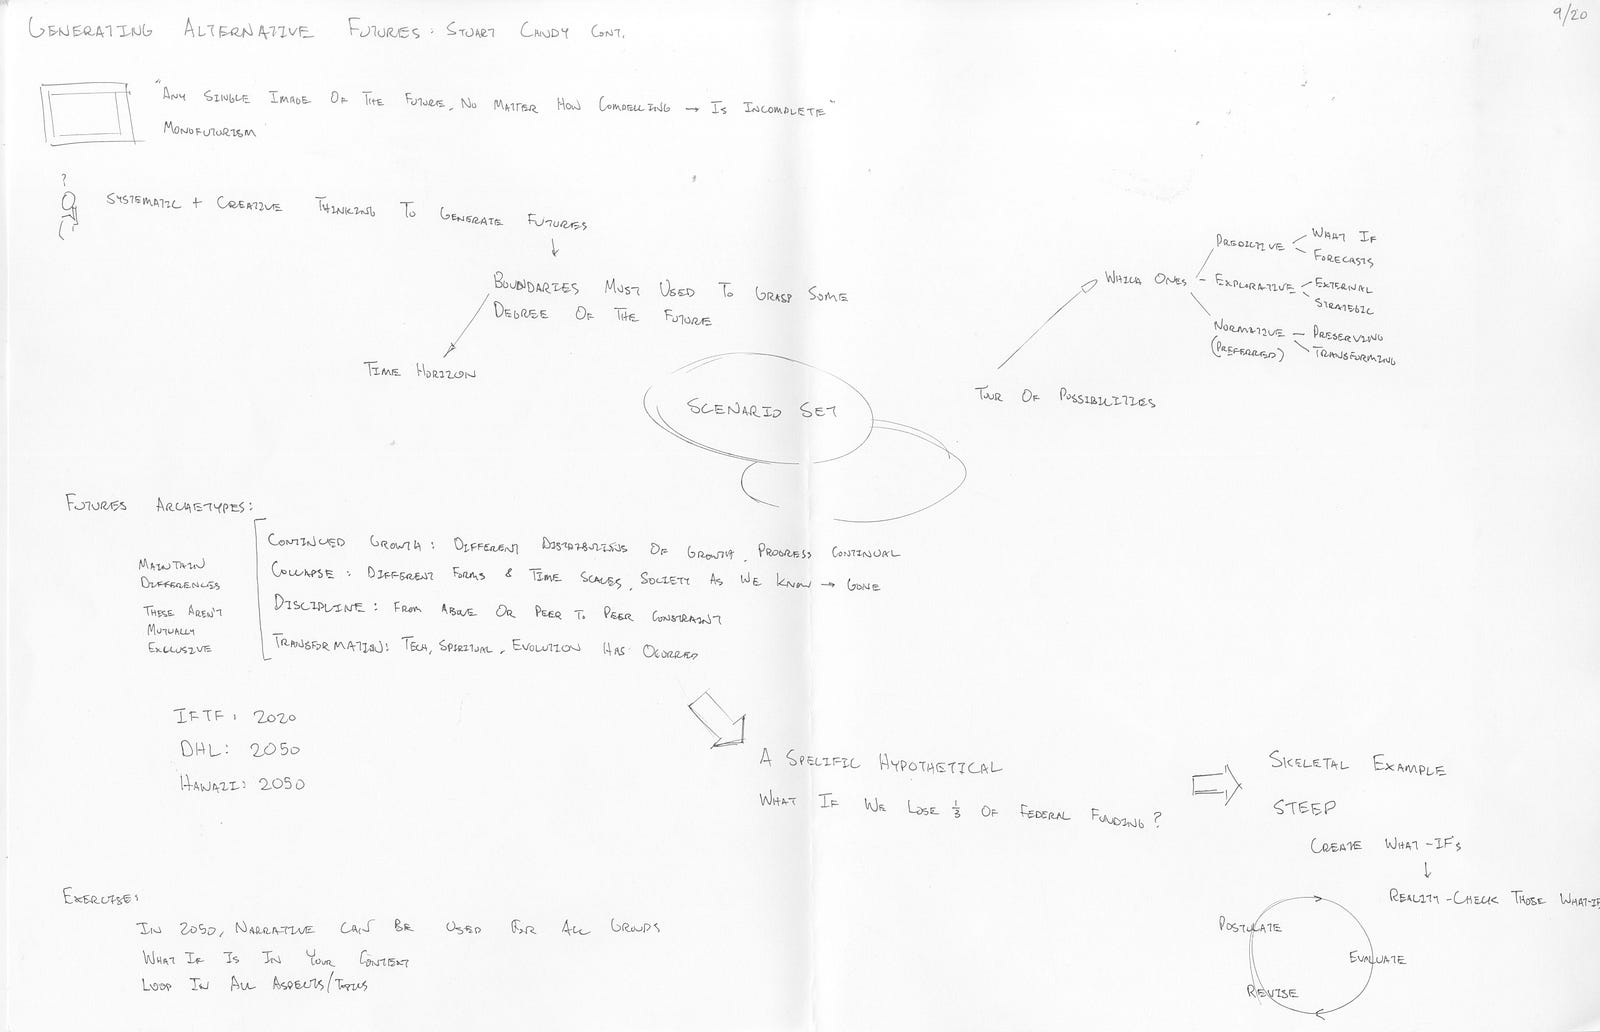 9/20
GENERATING ALTERNATIVE FUTURES: STUART CANDY CONT.
"ANY SINGLE IMAGE OF THE FUTURE, NO MATTER HOW COMPELLING → IS INCOMPLETE"
MONOFUTURISM
?
SYSTEMATIC + CREATIVE THINKING TO GENERATE FUTURES
BOUNDARIES MUST USED TO GRASP SOME
DEGREE OF THE FUTURE
TIME HORIZON
SCENARIO SET
TOUR OF POSSIBILITIES
WHICH ONES
PREDICTIVE
WHAT IF
FORECASTS
EXPLORATIVE
EXTERNAL
STRATEGIC
NORMATIVE
(PREFERRED)
PRESERVING
TRANSFORMING
FUTURES ARCHETYPES:
MAINTAIN
DIFFERENCES
THESE AREN'T
MUTUALLY
EXCLUSIVE
CONTINUED GROWTH: DIFFERENT DISTRIBUTIONS OF GROWTH, PROGRESS CONTINUAL
COLLAPSE: DIFFERENT FORMS & TIME SCALES, SOCIETY AS WE KNOW → GONE
DISCIPLINE: FROM ABOVE OR PEER TO PEER CONSTRAINT
TRANSFORMATION: TECH, SPIRITUAL, EVOLUTION HAS OCURRED
IFTF: 2020
DHL: 2050
HAWAII: 2050
A SPECIFIC HYPOTHETICAL
WHAT IF WE LOSE 1/3 OF FEDERAL FUNDING?
SKELETAL EXAMPLE
STEEP
CREATE WHAT-IF'S
↓
REALITY-CHECK THOSE WHAT-IF
POSTULATE
EVALUATE
REVISE
EXERCISE:
IN 2050, NARRATIVE CAN BE USED FOR ALL GROUPS
WHAT IF IS IN YOUR CONTEXT
LOOP IN ALL ASPECTS/TOPICS